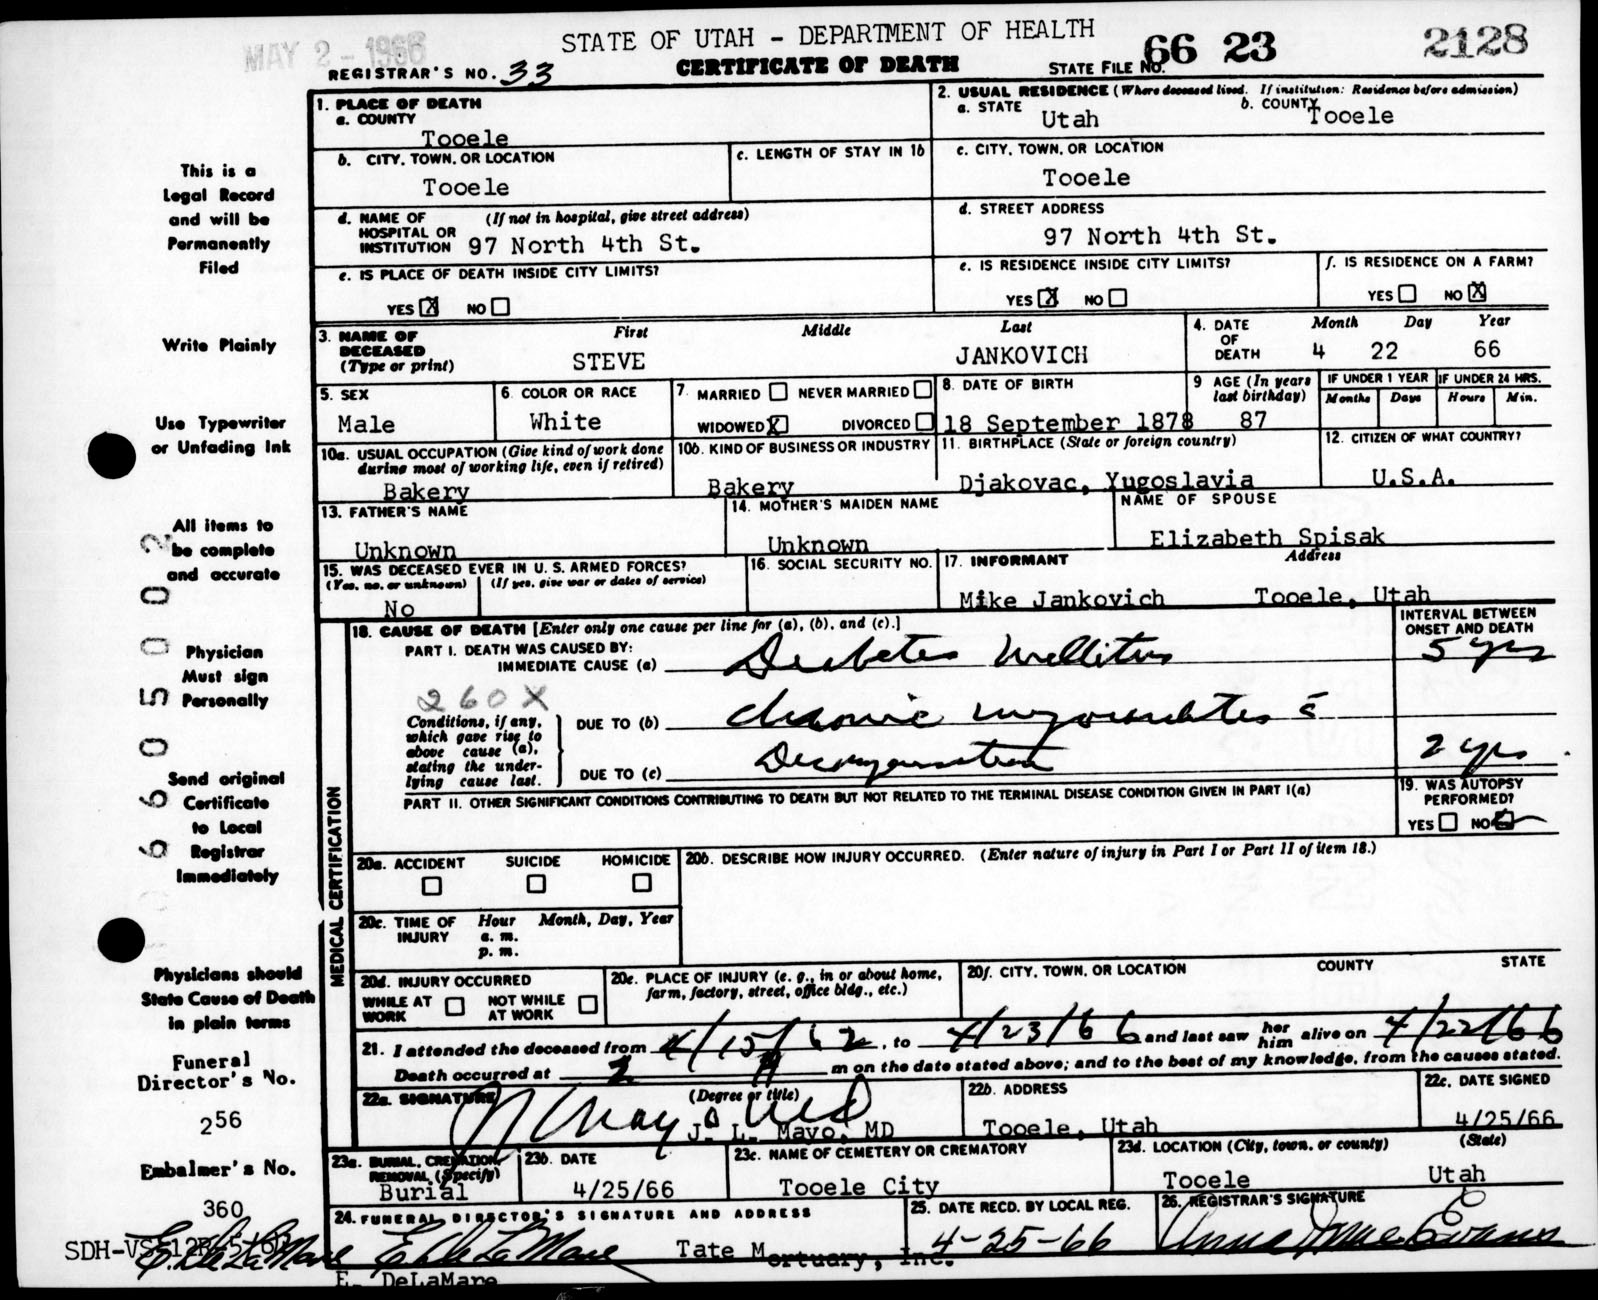 MAY 2 - 1966
STATE OF UTAH - DEPARTMENT OF HEALTH
66 23
2128
REGISTRAR'S NO. 33
CERTIFICATE OF DEATH
STATE FILE NO.
1. PLACE OF DEATH
a. COUNTY
Tooele
2. USUAL RESIDENCE (Where deceased lived. If institution: Residence before admission)
a. STATE
Utah
b. COUNTY
Tooele
b. CITY, TOWN, OR LOCATION
Tooele
c. LENGTH OF STAY IN 1b
c. CITY, TOWN, OR LOCATION
Tooele
d. NAME OF HOSPITAL OR INSTITUTION
(If not in hospital, give street address)
97 North 4th St.
d. STREET ADDRESS
97 North 4th St.
e. IS PLACE OF DEATH INSIDE CITY LIMITS?
YES X NO
e. IS RESIDENCE INSIDE CITY LIMITS?
YES X NO
f. IS RESIDENCE ON A FARM?
YES NO X
3. NAME OF DECEASED (Type or print)
First Middle Last
STEVE JANKOVICH
4. DATE OF DEATH
Month Day Year
4 22 66
5. SEX
Male
6. COLOR OR RACE
White
7. MARRIED NEVER MARRIED
WIDOWED X DIVORCED
8. DATE OF BIRTH
18 September 1878
9 AGE (In years last birthday)
87
IF UNDER 1 YEAR
Months Days
IF UNDER 24 HRS.
Hours Min.
10a. USUAL OCCUPATION (Give kind of work done during most of working life, even if retired)
Bakery
10b. KIND OF BUSINESS OR INDUSTRY
Bakery
11. BIRTHPLACE (State or foreign country)
Djakovac, Yugoslavia
12. CITIZEN OF WHAT COUNTRY?
U.S.A.
13. FATHER'S NAME
Unknown
14. MOTHER'S MAIDEN NAME
Unknown
NAME OF SPOUSE
Elizabeth Spisak
15. WAS DECEASED EVER IN U.S. ARMED FORCES?
(Yes, no, or unknown) (If yes, give war or dates of service)
No
16. SOCIAL SECURITY NO.
17. INFORMANT
Address
Mike Jankovich Tooele, Utah
MEDICAL CERTIFICATION
18. CAUSE OF DEATH [Enter only one cause per line for (a), (b), and (c).]
INTERVAL BETWEEN ONSET AND DEATH
PART I. DEATH WAS CAUSED BY:
IMMEDIATE CAUSE (a) Diabetes Mellitus 5 yrs
260X
Conditions, if any, which gave rise to above cause (a), stating the underlying cause last.
DUE TO (b) chronic myocarditis c̄
DUE TO (c) Decompensation 2 yrs
PART II. OTHER SIGNIFICANT CONDITIONS CONTRIBUTING TO DEATH BUT NOT RELATED TO THE TERMINAL DISEASE CONDITION GIVEN IN PART I(a)
19. WAS AUTOPSY PERFORMED?
YES NO
20a. ACCIDENT SUICIDE HOMICIDE
20b. DESCRIBE HOW INJURY OCCURRED. (Enter nature of injury in Part I or Part II of item 18.)
20c. TIME OF INJURY
Hour Month, Day, Year
a. m.
p. m.
20d. INJURY OCCURRED
WHILE AT WORK NOT WHILE AT WORK
20e. PLACE OF INJURY (e. g., in or about home, farm, factory, street, office bldg., etc.)
20f. CITY, TOWN, OR LOCATION COUNTY STATE
21. I attended the deceased from 4/15/62, to 4/23/66 and last saw her him alive on 4/22/66
Death occurred at 2 A m on the date stated above; and to the best of my knowledge, from the causes stated.
22a. SIGNATURE (Degree or title)
J. L. Mayo, MD
22b. ADDRESS
Tooele, Utah
22c. DATE SIGNED
4/25/66
23a. BURIAL, CREMATION, REMOVAL (Specify)
Burial
23b. DATE
4/25/66
23c. NAME OF CEMETERY OR CREMATORY
Tooele City
23d. LOCATION (City, town, or county) (State)
Tooele Utah
24. FUNERAL DIRECTOR'S SIGNATURE AND ADDRESS
E. DeLaMare Tate Mortuary, Inc.
E. DeLaMare
25. DATE RECD. BY LOCAL REG.
4-25-66
26. REGISTRAR'S SIGNATURE
Anna Jane Evans
This is a
Legal Record
and will be
Permanently
Filed
Write Plainly
Use Typewriter
or Unfading Ink
All items to
be complete
and accurate
Physician
Must sign
Personally
Send original
Certificate
to Local
Registrar
Immediately
Physicians should
State Cause of Death
in plain terms
Funeral
Director's No.
256
Embalmer's No.
360
E. DeLaMare
6605002